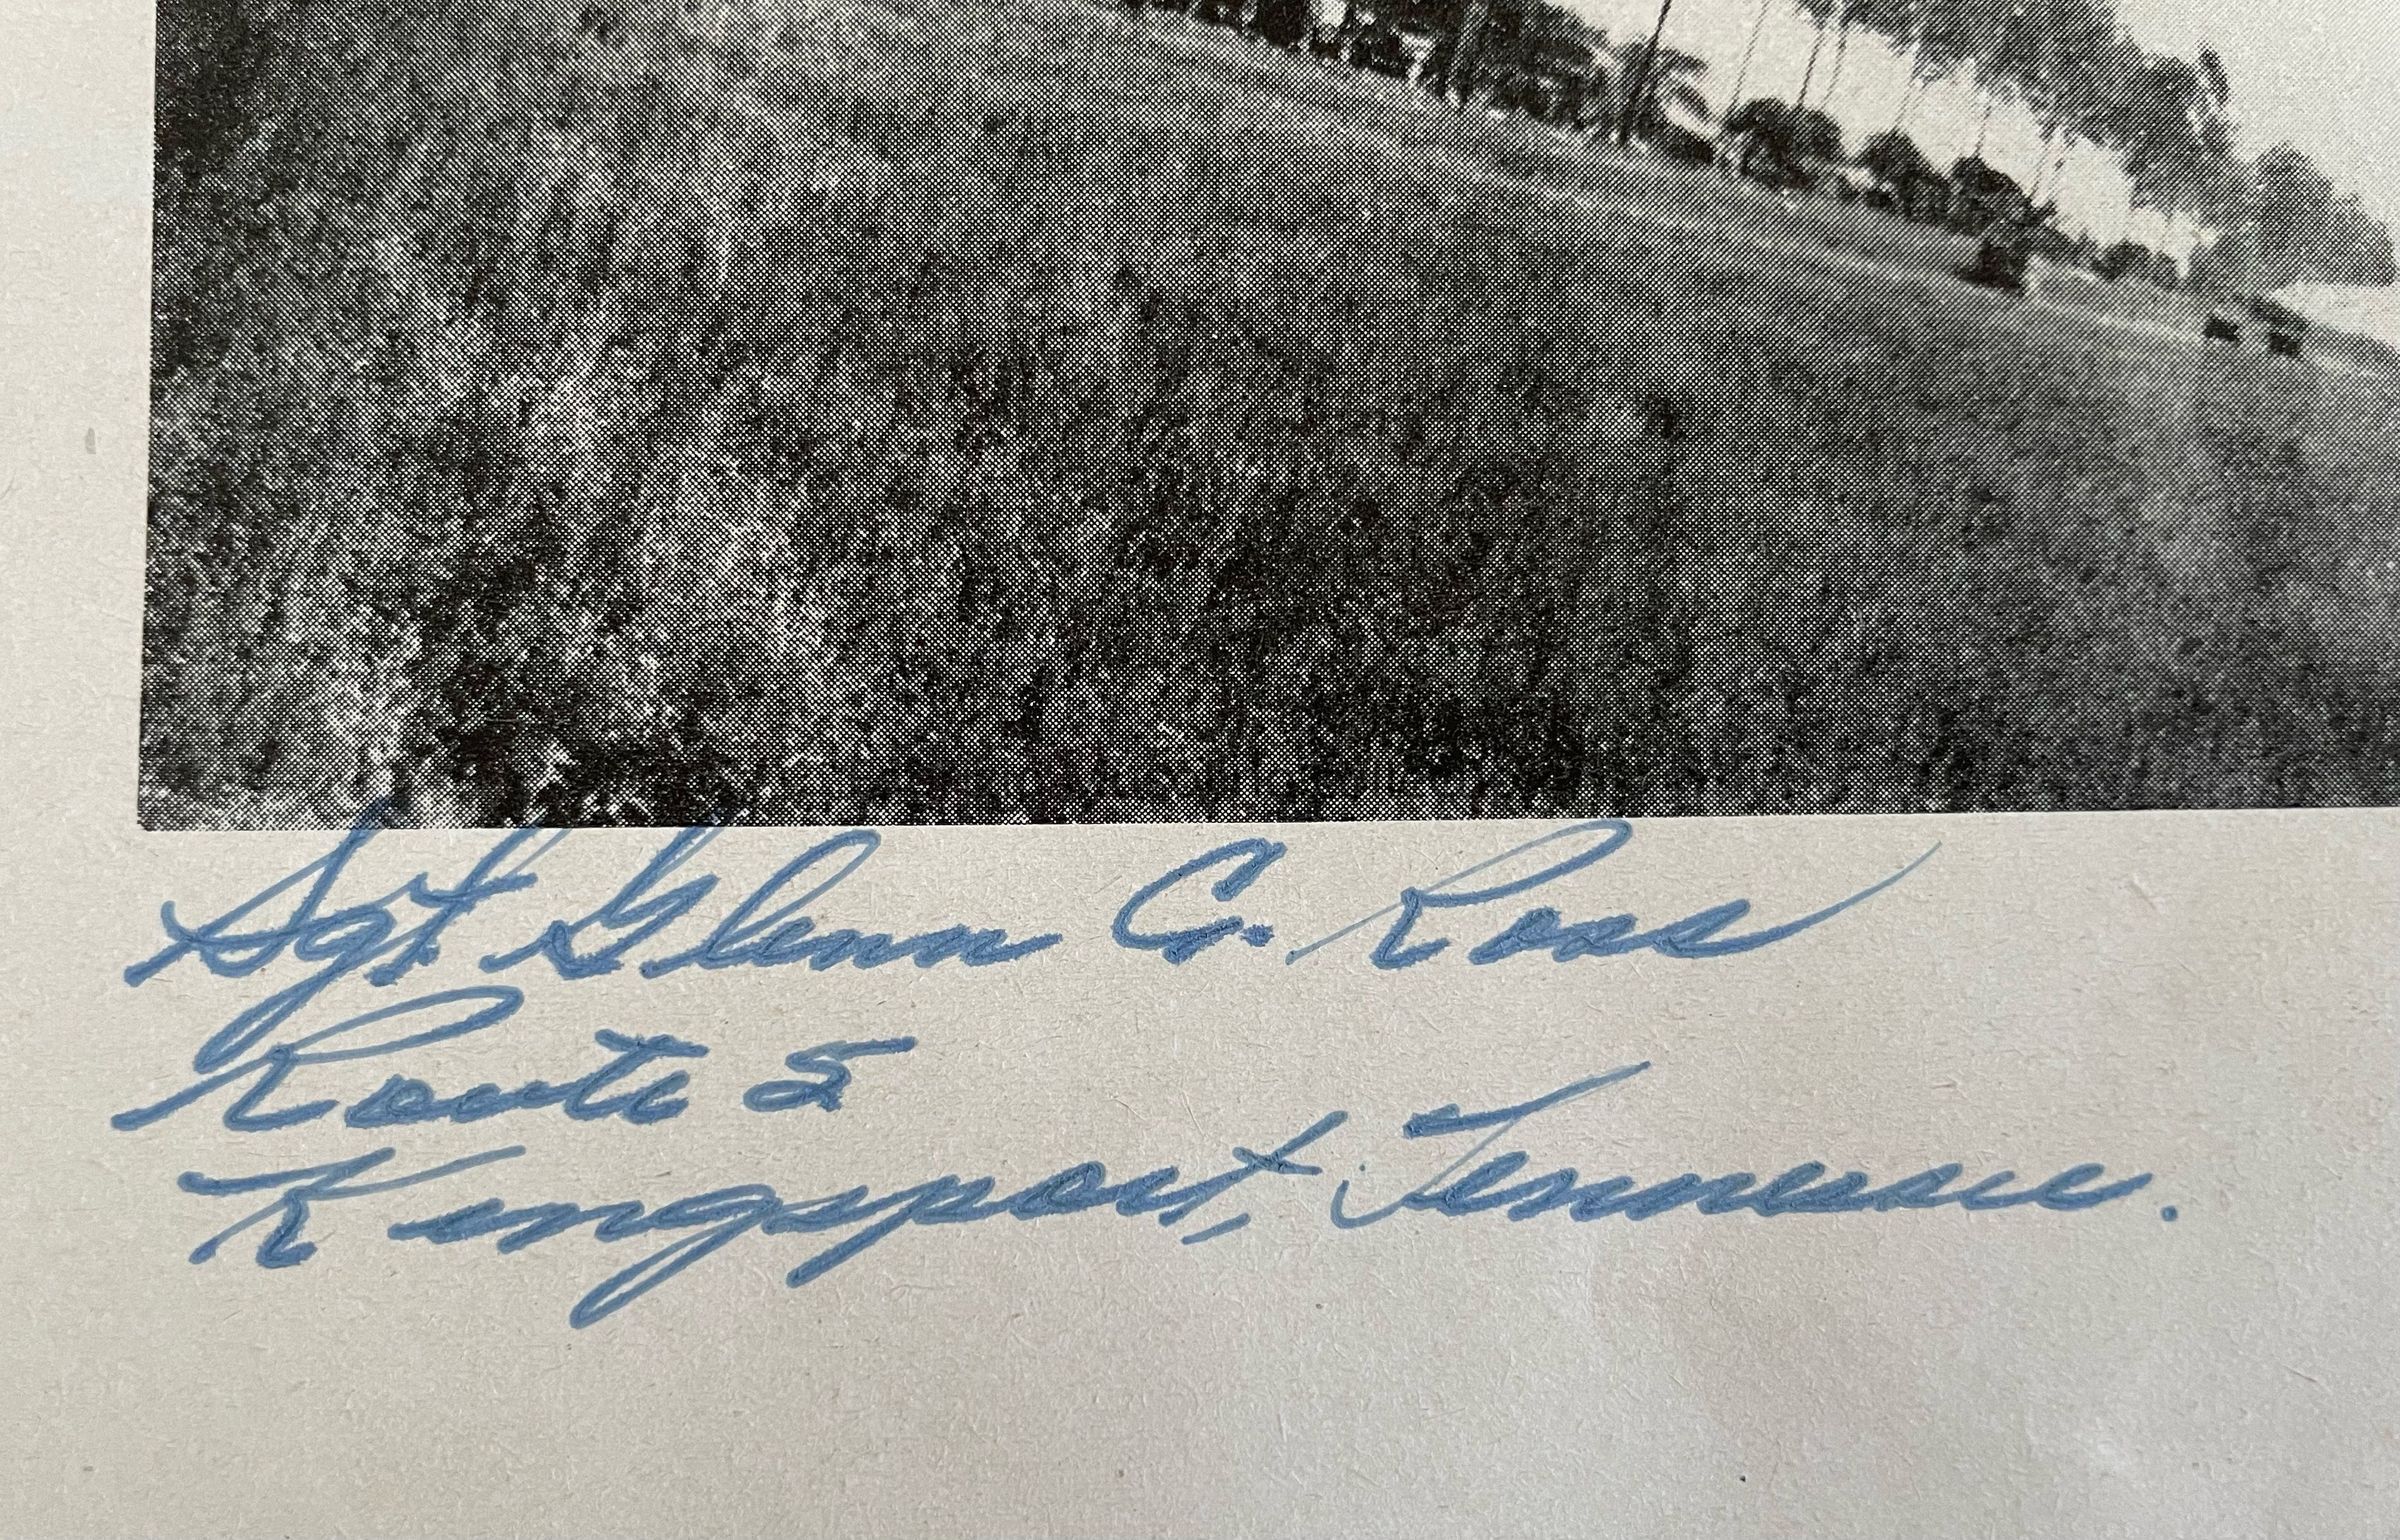 Sgt Glenn C. Ross
Route 5
Kingsport, Tennessee.